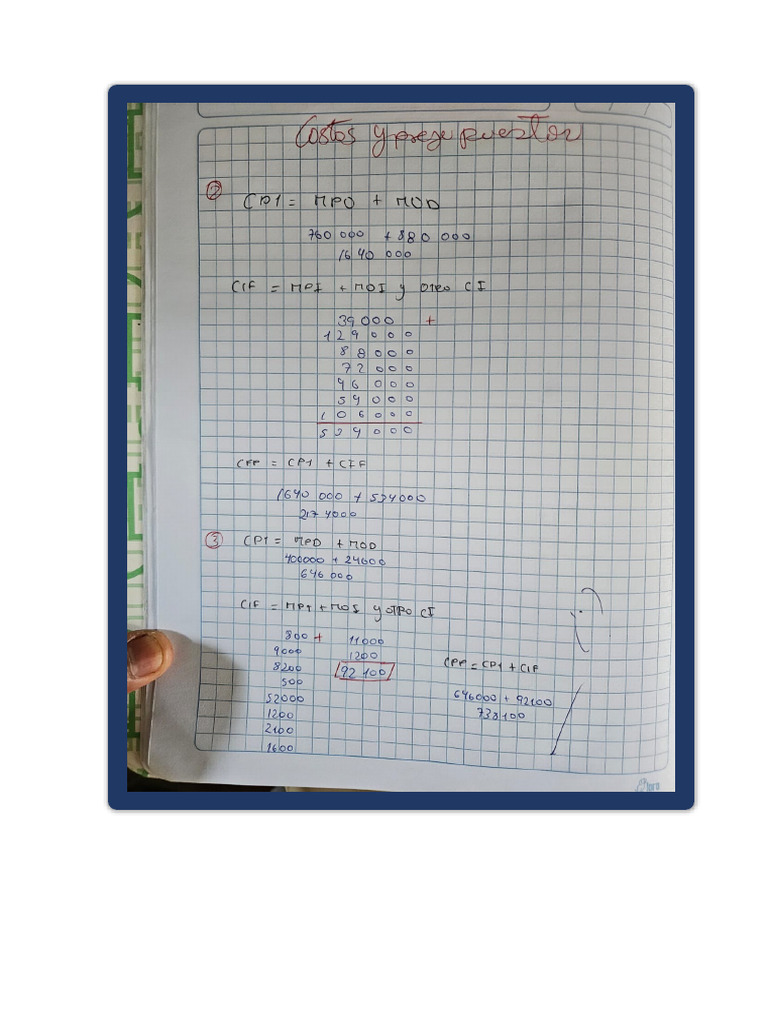 Costos y presupuestos
② CP1 = MPD + MOD
760 000 + 880 000
1640 000
CIF = MPI + MOI y otro CI
39000 +
129000
88000
72000
46000
54000
106000
534000
CPP = CP1 + CIF
1640 000 + 534000
2174000
③ CP1 = MPD + MOD
400000 + 24600
646 000
CIF = MPI + MOI y otro CI
300 +
9000
8200
500
52000
1200
2100
1600
11000
1200
92 100
CPP = CP1 + CIF
646000 + 92100
738100